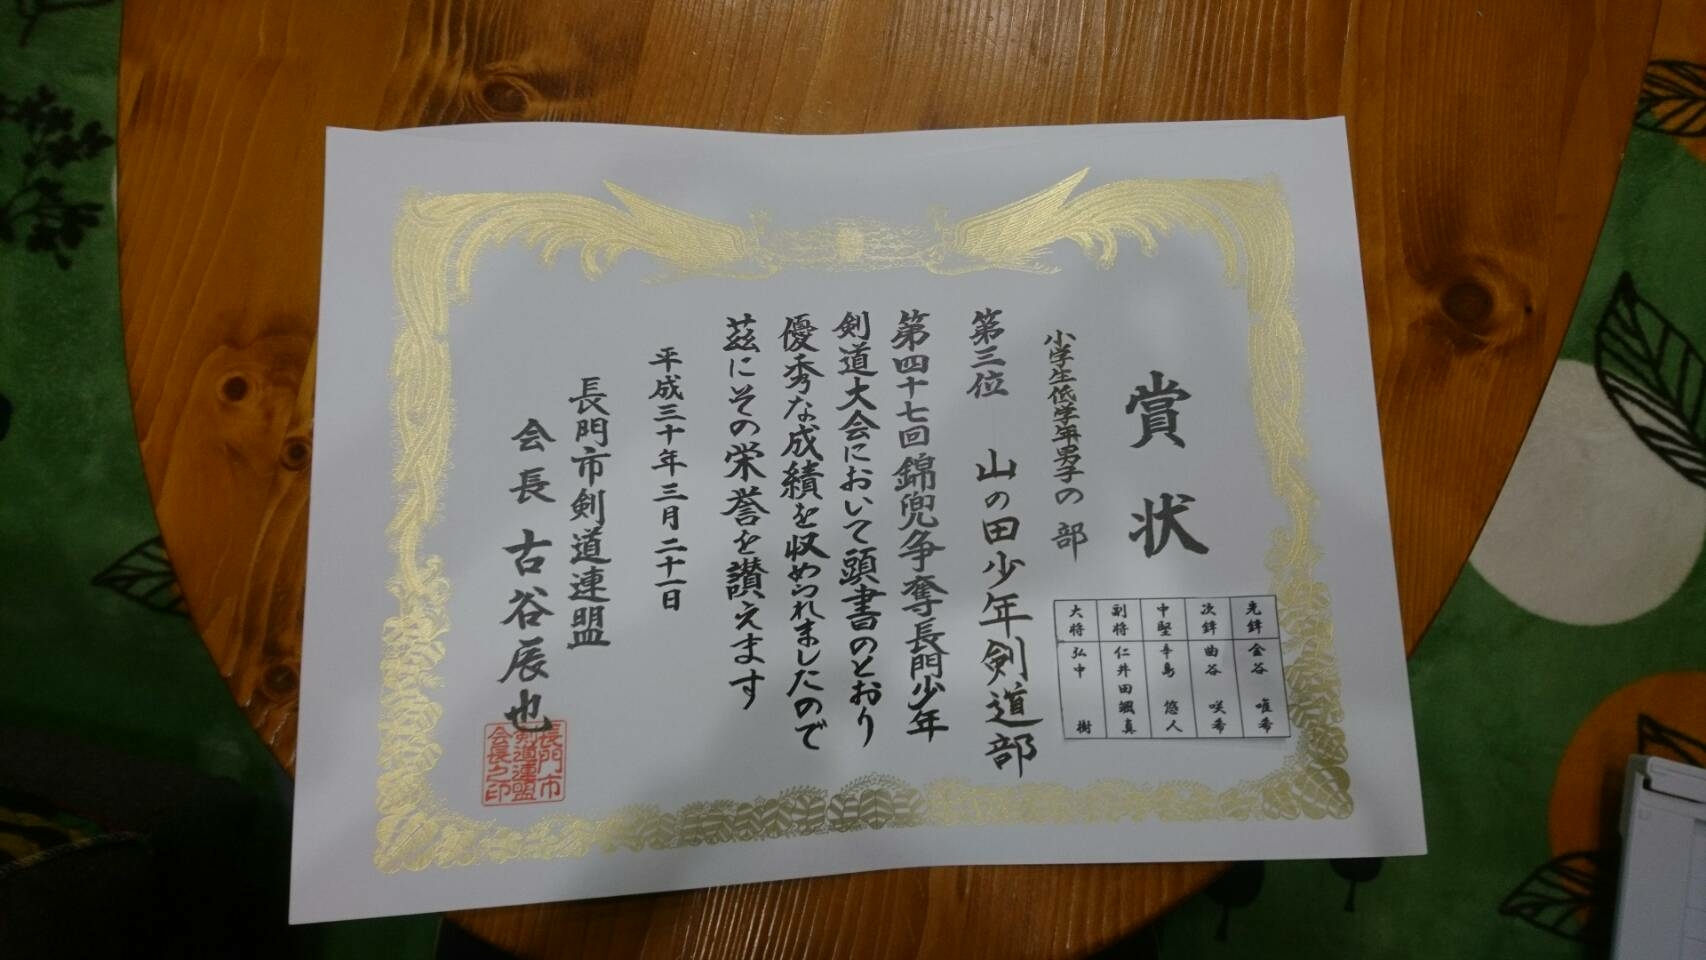 賞状
小学生低学年男子の部
第三位 山の田少年剣道部
第四十七回錦兜争奪長門少年
剣道大会において頭書のとおり
優秀な成績を収められましたので
茲にその栄誉を讃えます
平成三十年三月二十一日
長門市剣道連盟
会長 古谷辰也
長門市
剣道連盟
会長之印
先鋒 金谷 唯希
次鋒 曲谷 咲希
中堅 辛島 悠人
副将 仁井田颯真
大将 弘中 樹